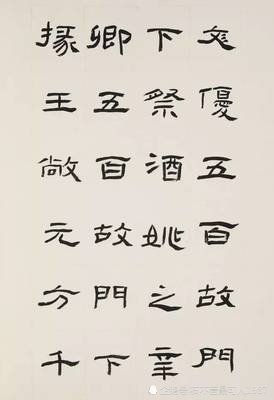 文優五百故門
下祭酒姚之辛
卿五百故門下
掾王敞元方千